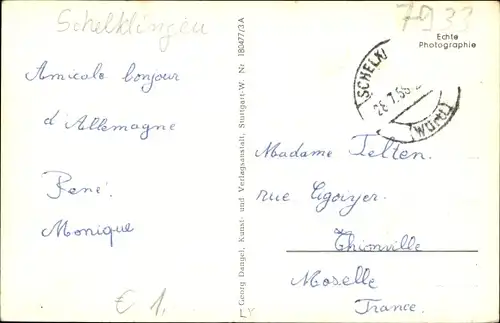 Schelklingen
7933
Echte
Photographie
SCHELKL
28.7.56
(WÜRTT)
Amicale bonjour
d'Allemagne
René
Monique
Georg Dangel, Kunst- und Verlagsanstalt, Stuttgart-W. Nr 180477/3A
Madame Felten.
rue
Thionville
Moselle
France.
€ 1,